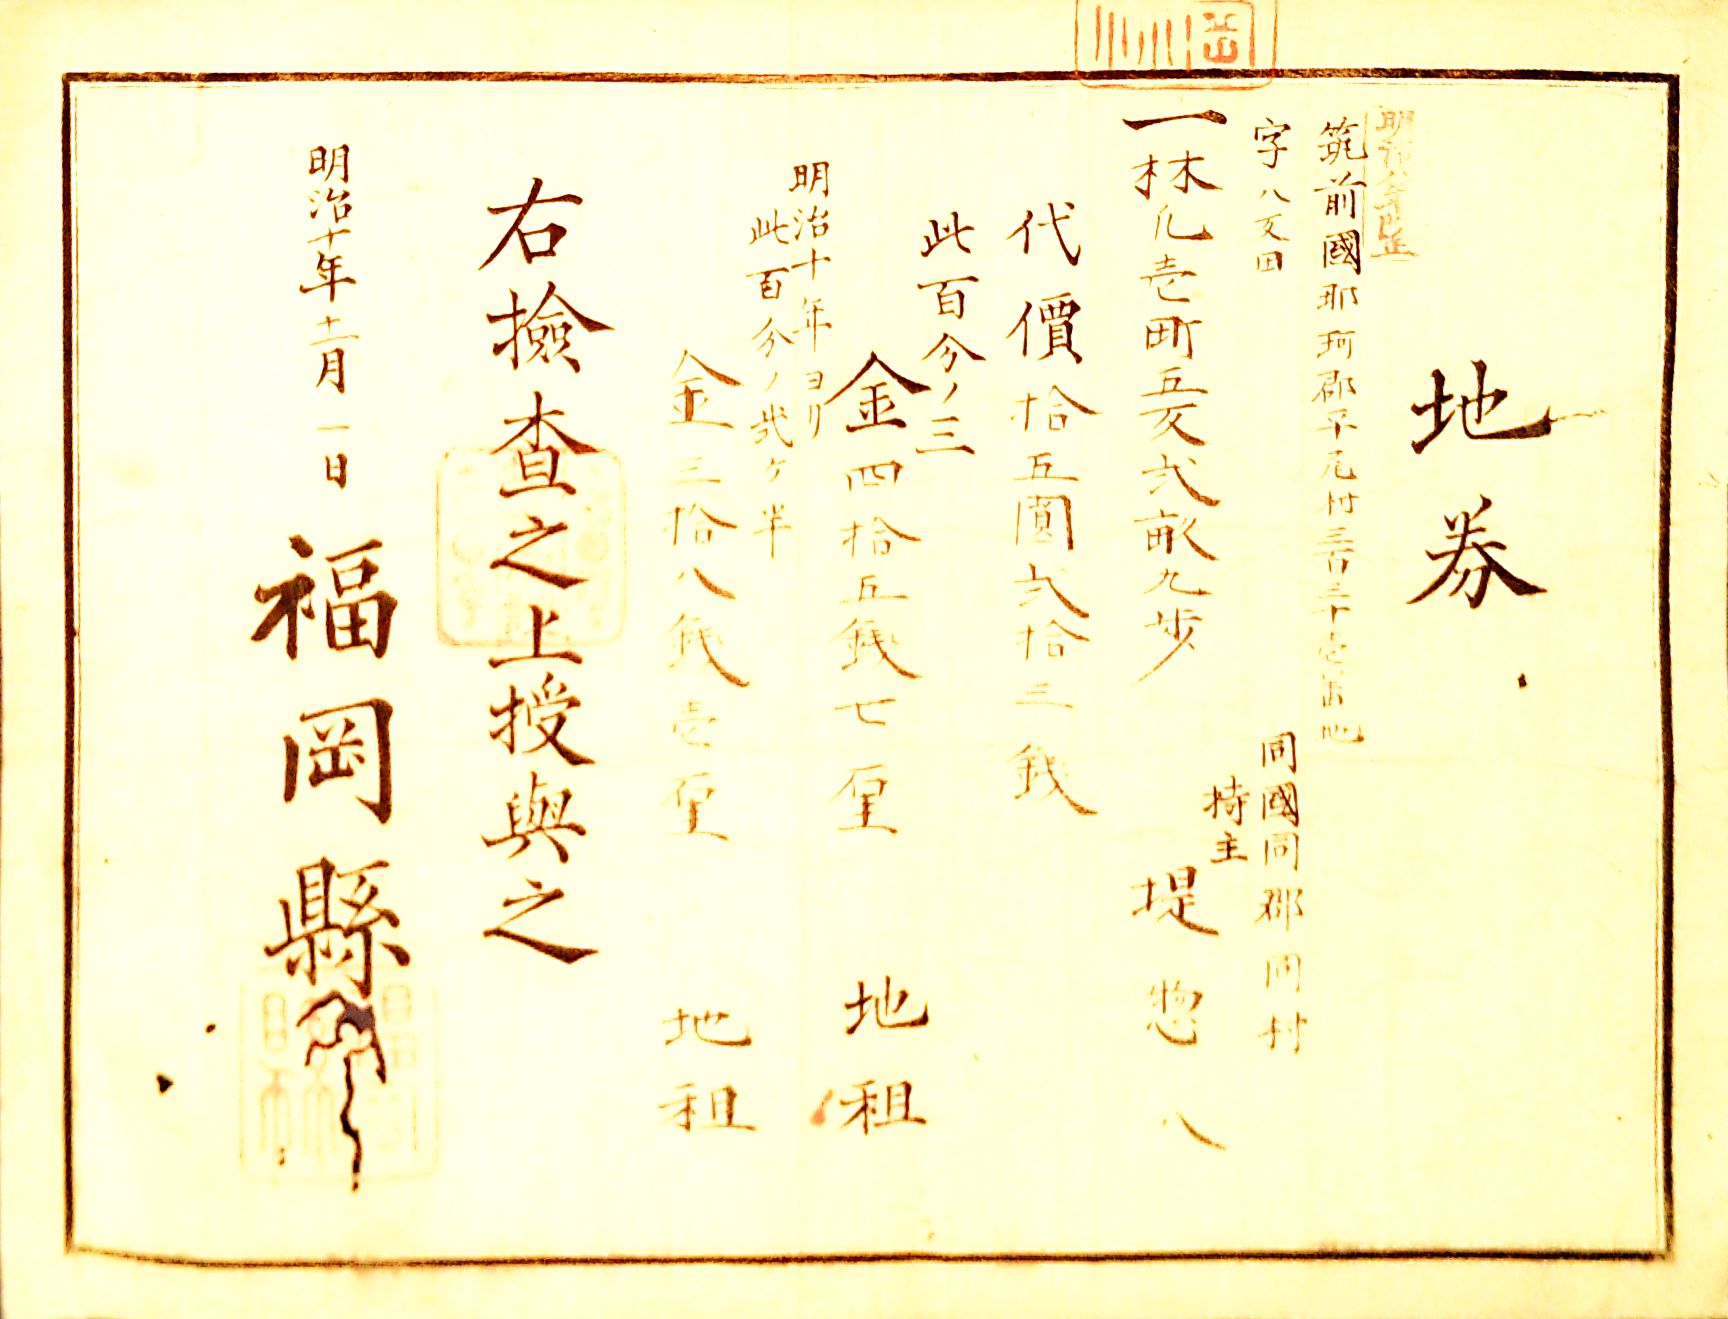 地券
明治八年改正
筑前國那珂郡平尾村三百三十壱番地
字八反田
同國同郡同村
持主
一林反壱町五反弐畝九歩 堤惣八
代價拾五圓弐拾三錢
此百分ノ三
金四拾五錢七厘 地租
明治十年ヨリ
此百分ノ弐ヶ半
金三拾八錢壱厘 地租
右撿查之上授與之
明治十年十二月一日 福岡縣